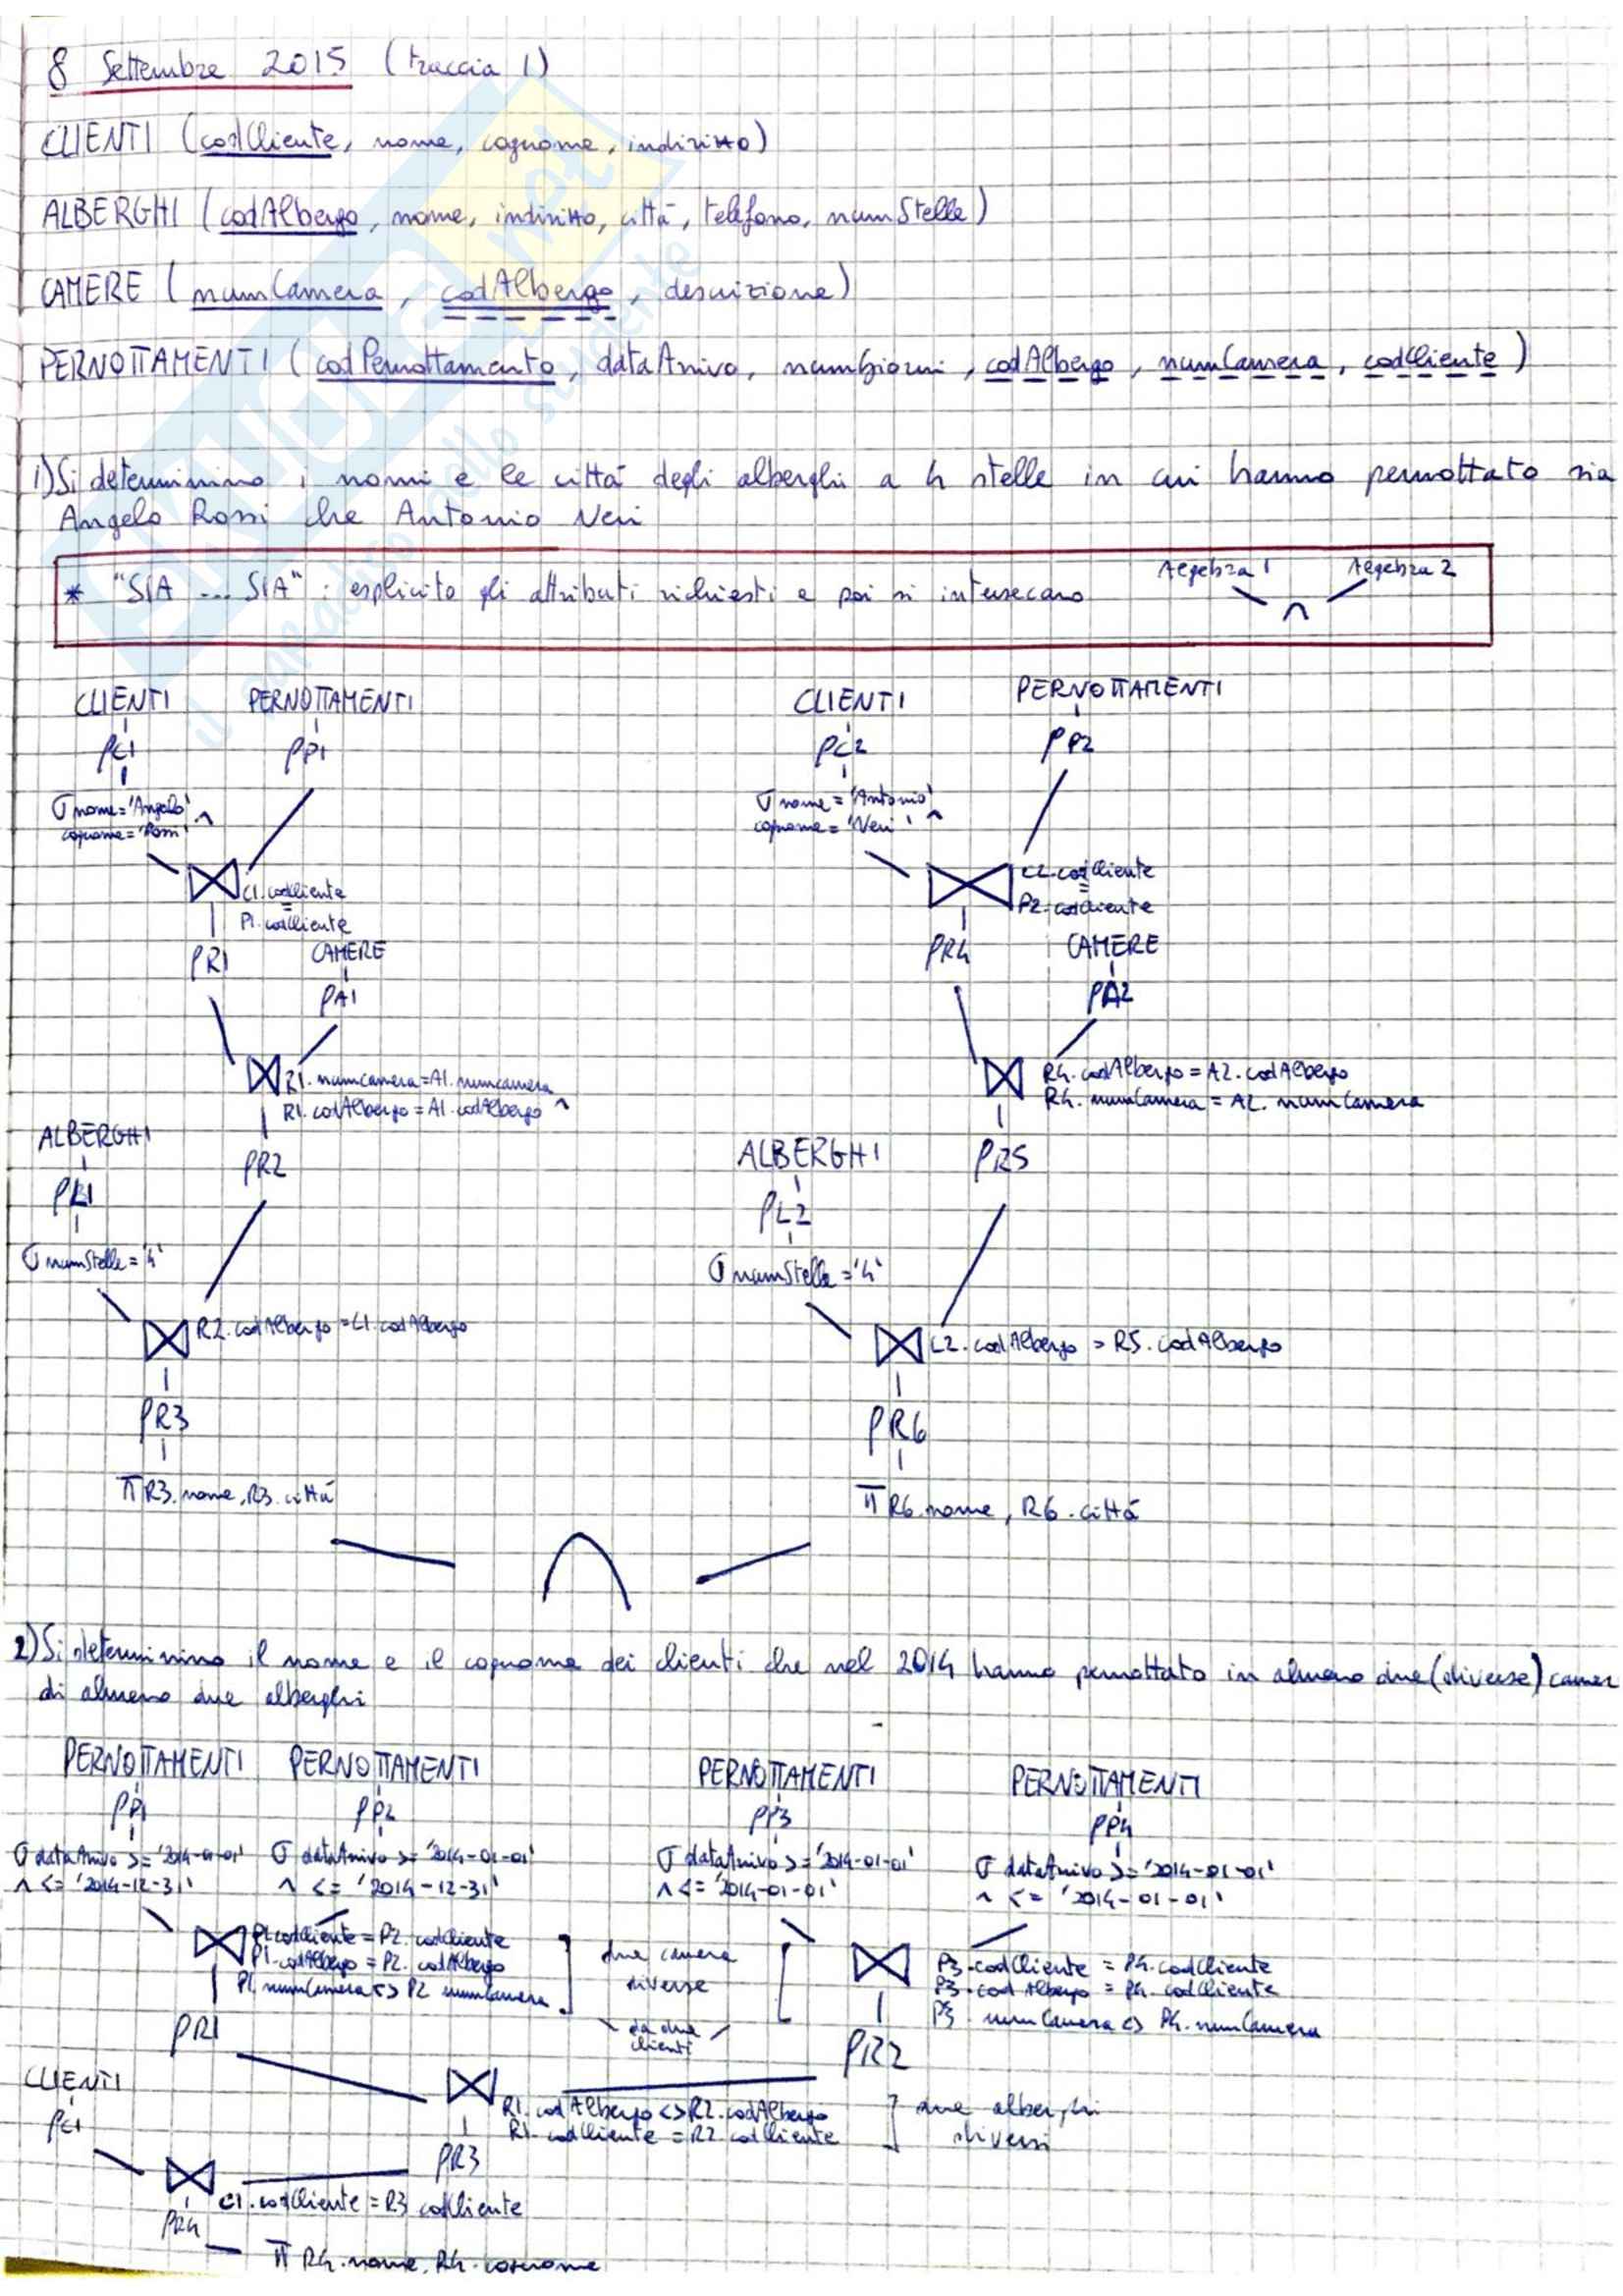 8 Settembre 2015 (traccia 1)
CLIENTI (codCliente, nome, cognome, indirizzo)
ALBERGHI (codAlbergo, nome, indirizzo, città, telefono, numStelle)
CAMERE (numCamera, codAlbergo, descrizione)
PERNOTTAMENTI (codPernottamento, dataArrivo, numGiorni, codAlbergo, numCamera, codCliente)
1) Si determinino i nomi e le città degli alberghi a 4 stelle in cui hanno pernottato sia
Angelo Rossi che Antonio Neri
* "SIA ... SIA" : esplicito gli attributi richiesti e poi si intersecano
Algebra 1 Algebra 2
∩
CLIENTI PERNOTTAMENTI
ρC1 ρP1
σ nome='Angelo' ^
cognome='Rossi'
⋈ C1.codCliente
=
P1.codCliente
ρR1 CAMERE
ρA1
⋈ R1.numcamera=A1.numcamera
R1.codAlbergo=A1.codAlbergo ^
ALBERGHI
ρR2
ρL1
σ numStelle='4'
⋈ R2.codAlbergo=L1.codAlbergo
ρR3
π R3.nome, R3.città
CLIENTI PERNOTTAMENTI
ρC2 ρP2
σ nome='Antonio'
cognome='Neri' ^
⋈ C2.codCliente
=
P2.codCliente
ρR4 CAMERE
ρA2
⋈ R4.codAlbergo=A2.codAlbergo
R4.numCamera=A2.numCamera
ALBERGHI ρR5
ρL2
σ numStelle='4'
⋈ L2.codAlbergo = R5.codAlbergo
ρR6
π R6.nome, R6.città
∩
2) Si determinino il nome e il cognome dei clienti che nel 2014 hanno pernottato in almeno due (diverse) camer
di almeno due alberghi
PERNOTTAMENTI PERNOTTAMENTI PERNOTTAMENTI PERNOTTAMENTI
ρP1 ρP2 ρP3 ρP4
σ dataArrivo >= '2014-01-01' σ dataArrivo >= '2014-01-01' σ dataArrivo >= '2014-01-01' σ dataArrivo >= '2014-01-01'
^ <= '2014-12-31' ^ <= '2014-12-31' ^ <= '2014-01-01' ^ <= '2014-01-01'
⋈ P1.codCliente = P2.codCliente
P1.codAlbergo = P2.codAlbergo
P1.numCamera <> P2.numCamera
due camere
diverse
da due
clienti
⋈ P3.codCliente = P4.codCliente
P3.codAlbergo = P4.codCliente
P3.numCamera <> P4.numCamera
ρR1 ρR2
CLIENTI
ρC1
⋈ R1.codAlbergo <> R2.codAlbergo
R1.codCliente = R2.codCliente
due alberghi
diversi
ρR3
⋈ C1.codCliente = R3.codCliente
ρR4
π R4.nome, R4.cognome